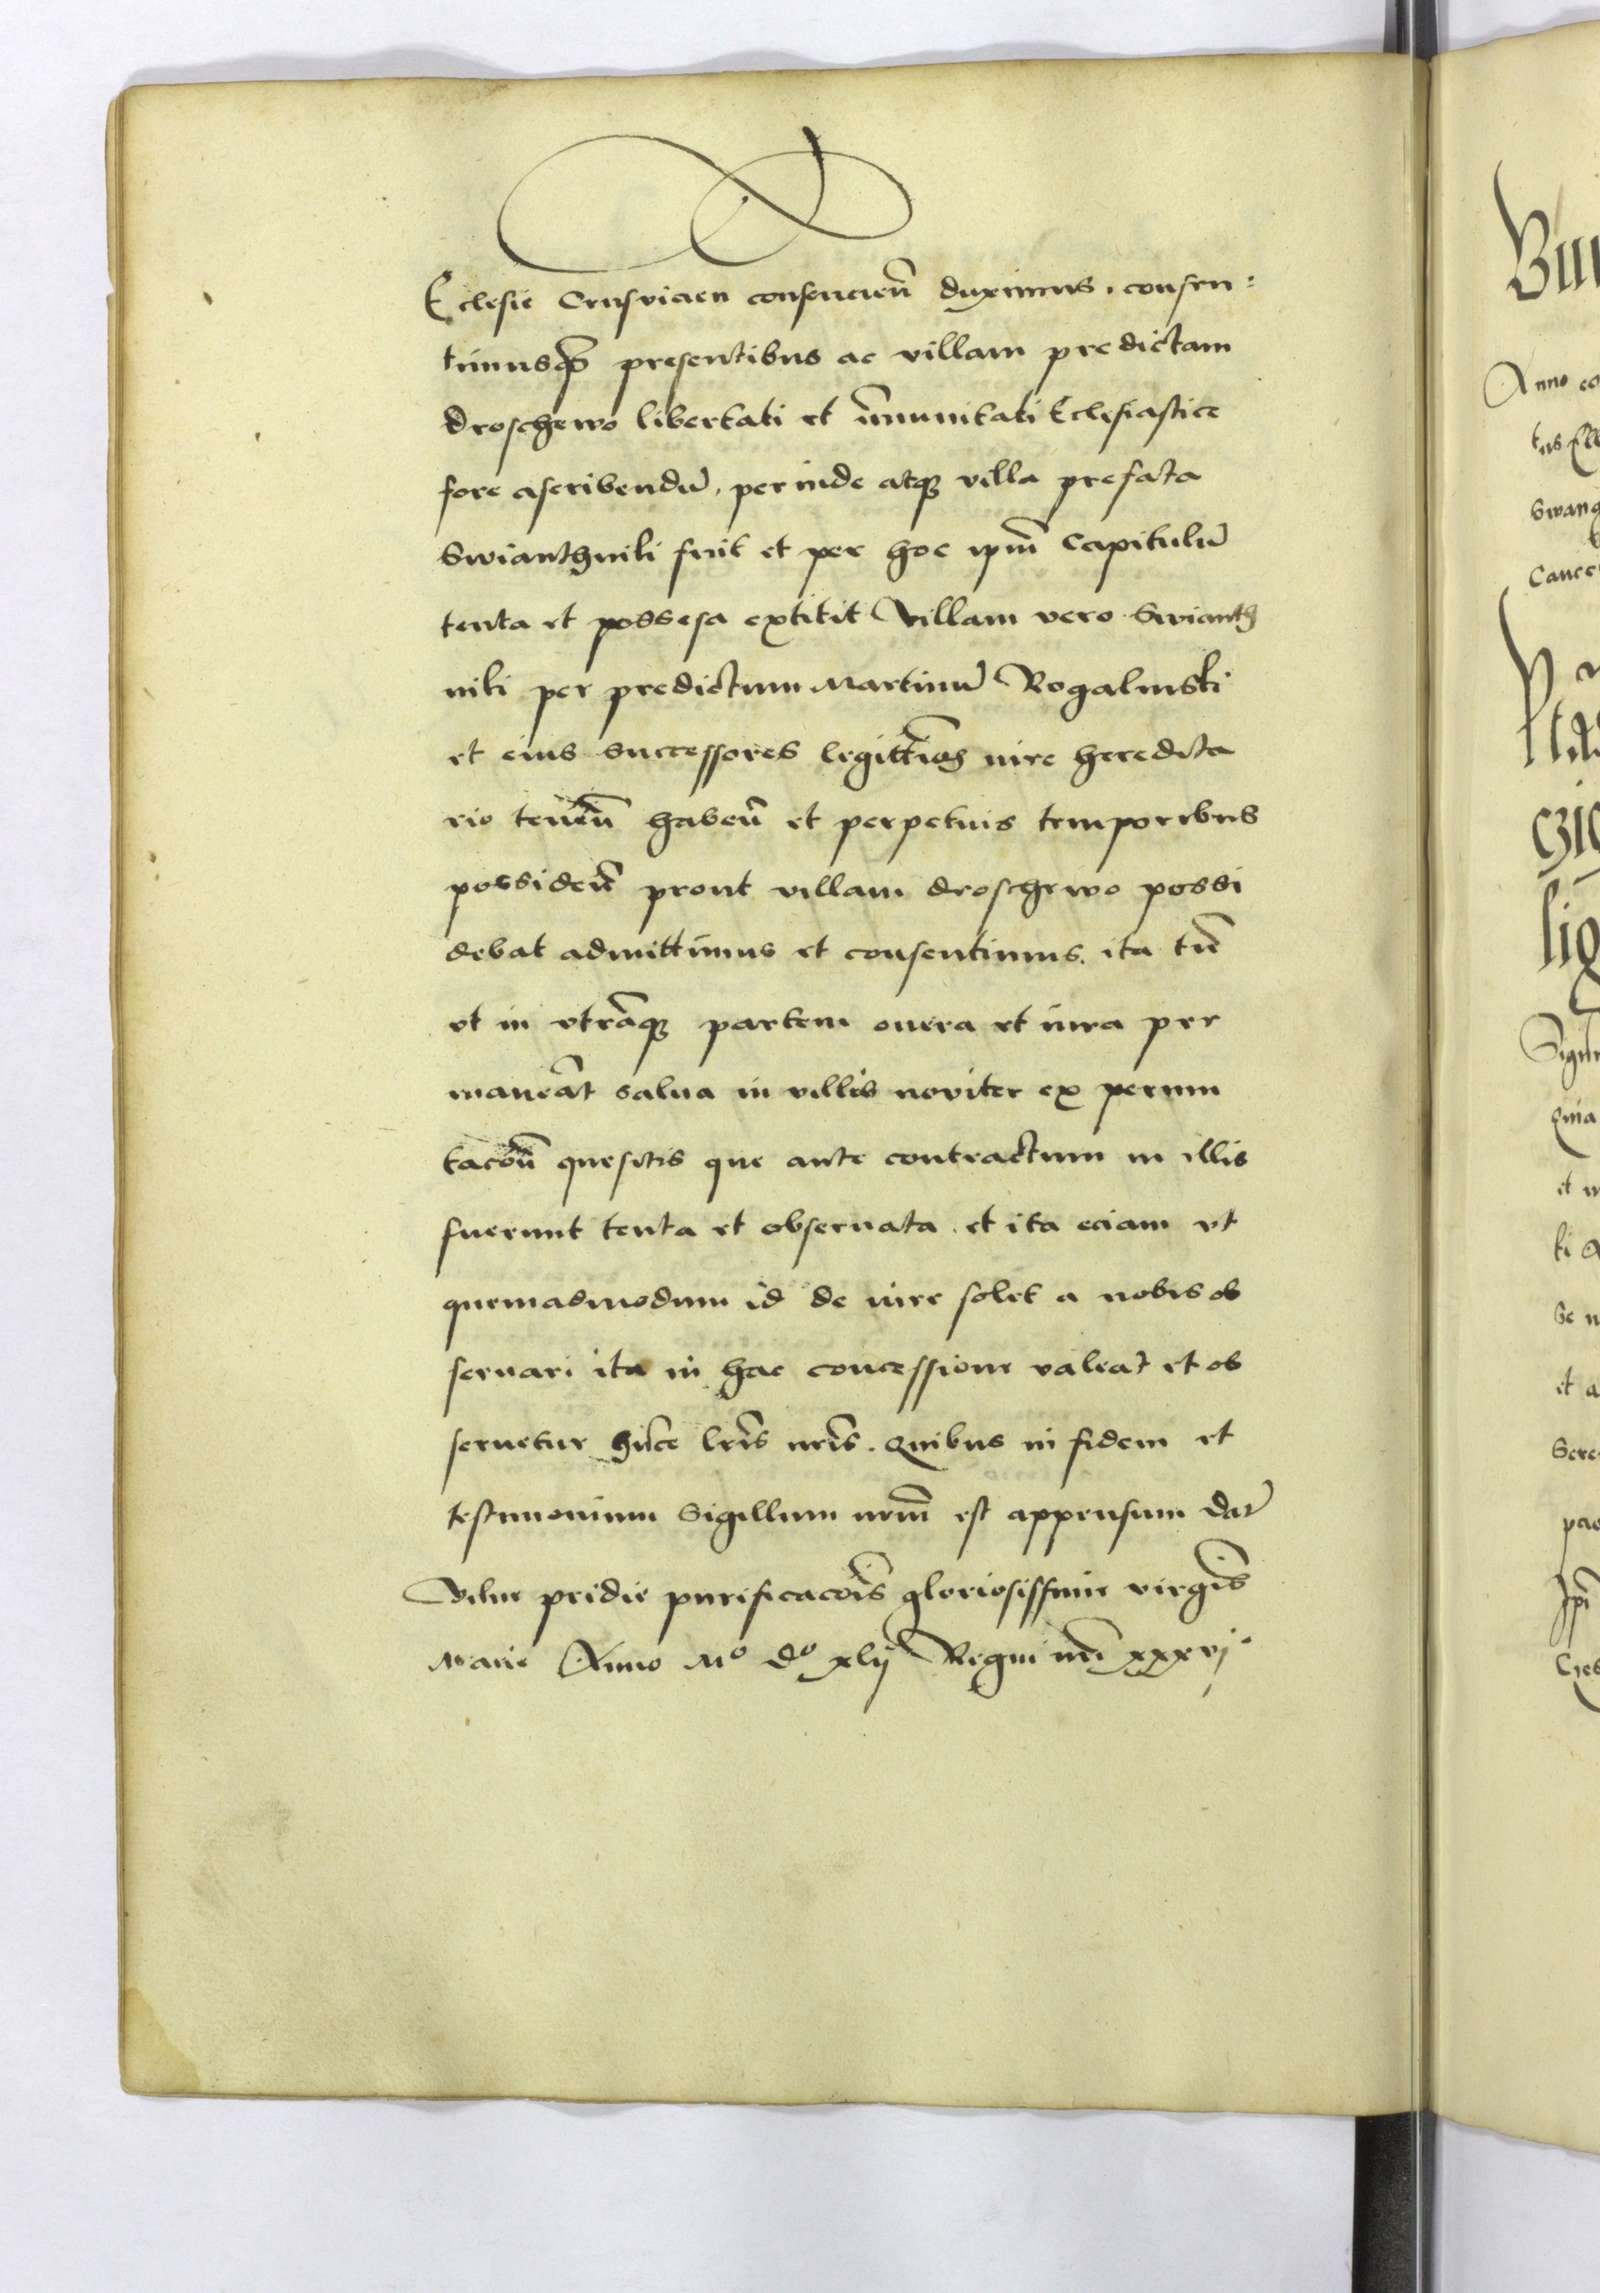 Eclesie Crusvicien consencien̄ duximus . consen:
timusq̃ presentibus ac villam predictam
Droschewo libertati et im̄unitati Eclesiastice
fore ascribendū, perinde atq̃ villa prefata
Swianthniki fuit et per hoc ipm̄ Capitulū
tenta et possesa extitit Villam vero Swianth
niki per predictum Martinū Rogalinski
et eius successores legittīos iure heredita
rio tenen̄ haben̄ et perpetuis temporibus
possiden̄ prout villam droschewo possi
debat admittimus et consentimus. ita tn̄
vt in vtrāq̃ partem onera et iura per
maneāt salua in villis noviter ex permu
tacōn̄ quesitis que ante contractum in illis
fuerunt tenta et obseruata . et ita eciam vt
quemadmodum id de iure solet a nobis ob
seruari ita in hac concessione valeat et ob
seruetur hūce lrīs nrīs . Quibus in fidem et
testimonium Sigillum nrm̄ est appensum Dat̄
Vilne pridie purificacōis gloriosissime virgīs
Marie Anno Mº dº xlij Regni nrī xxxvj.
Anno
Cance
Quia
et